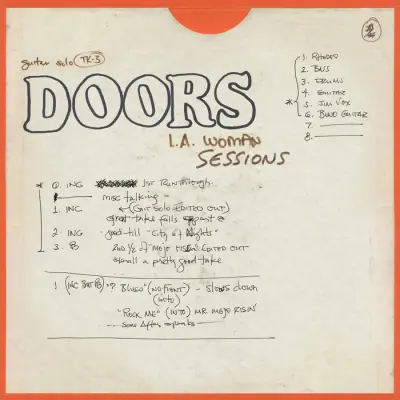 guitar solo TK-3
DOORS
L.A. WOMAN
SESSIONS
1. RHODES
2. BASS
3. DRUMS
4. GUITAR
5. JIM VOX
6. BEND GUITAR
7.
8.
0. INC 1st Runthrough
misc talking
1. INC (GUIT SOLO EDITED OUT)
great take falls apart @
2. INC good till "City of Nights"
3. B 2nd 1/2 of "MOJO RISIN" EDITED OUT
overall a pretty good take
1 "? BLUES" (NO FRONT) - slows down
(INTO)
"ROCK ME" (INTO) MR MOJO RISIN'
some After